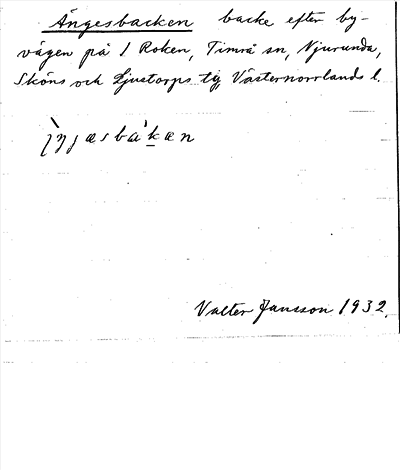 Ängesbacken backe efter by-
vägen på 1 Roken, Timrå sn, Njurunda,
Sköns och Ljustorps tg, Västernorrlands l.
Valter Jansson 1932.